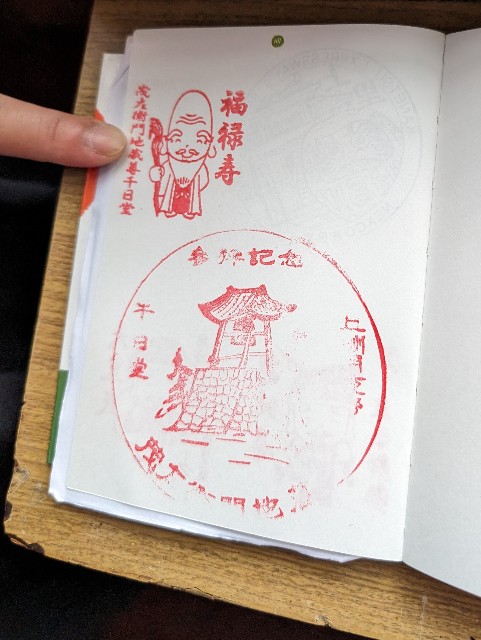 福禄寿
茂左衛門地蔵尊千日堂
参拝記念
千日堂
上州月夜野
茂左衛門地蔵